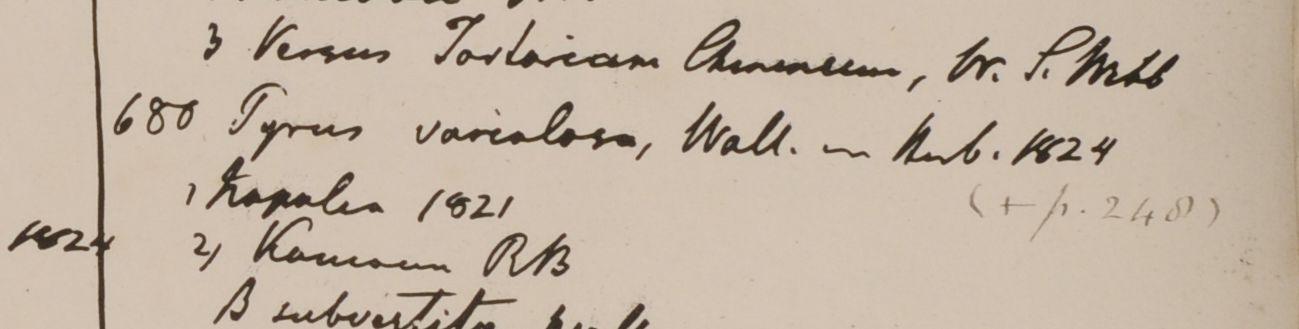 3 Versus Tartaricam Chinensem, W. S. Webb
680 Pyrus variolosa, Wall. in Herb. 1824
1 Napalia 1821
(+ p. 248)
1824 2, Kamaon RB
B subvestita